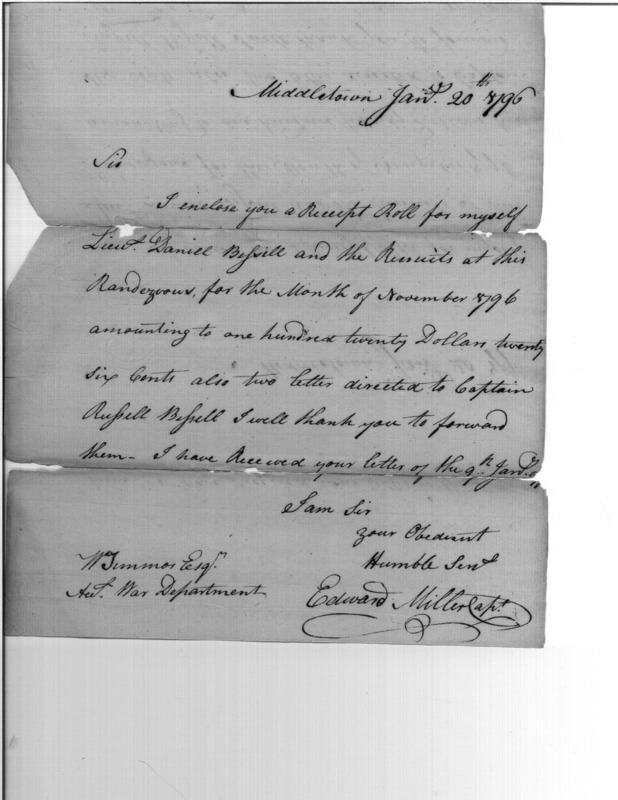 Middletown Jany. 20th 1796
Sir
I enclose you a Receipt Roll for myself
Lieut. Daniel Bissill and the Recruits at this
Randezvous, for the Month of November 1796
amounting to one hundred twenty Dollars twenty
six Cents also two letter directed to Captain
Russell Bissell I well thank you to forward
them - I have Received your letter of the 9th Jany.
I am Sir
your Obedient
Humble Servt
Edward Miller Capt.
W Simmos Esqr.
Act. War Department